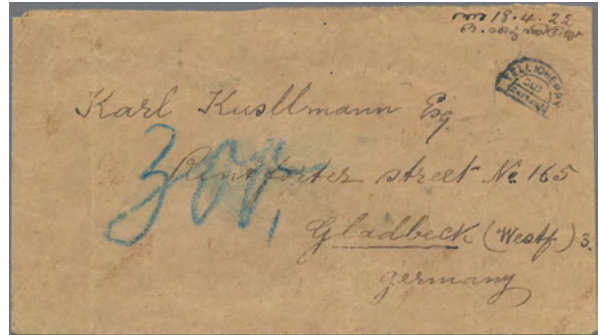 18.4.22
TELLICHERRY
Karl Kusllmann Esq.
Rentforter street No 165
Gladbeck (Westf.) 3.
germany
300,